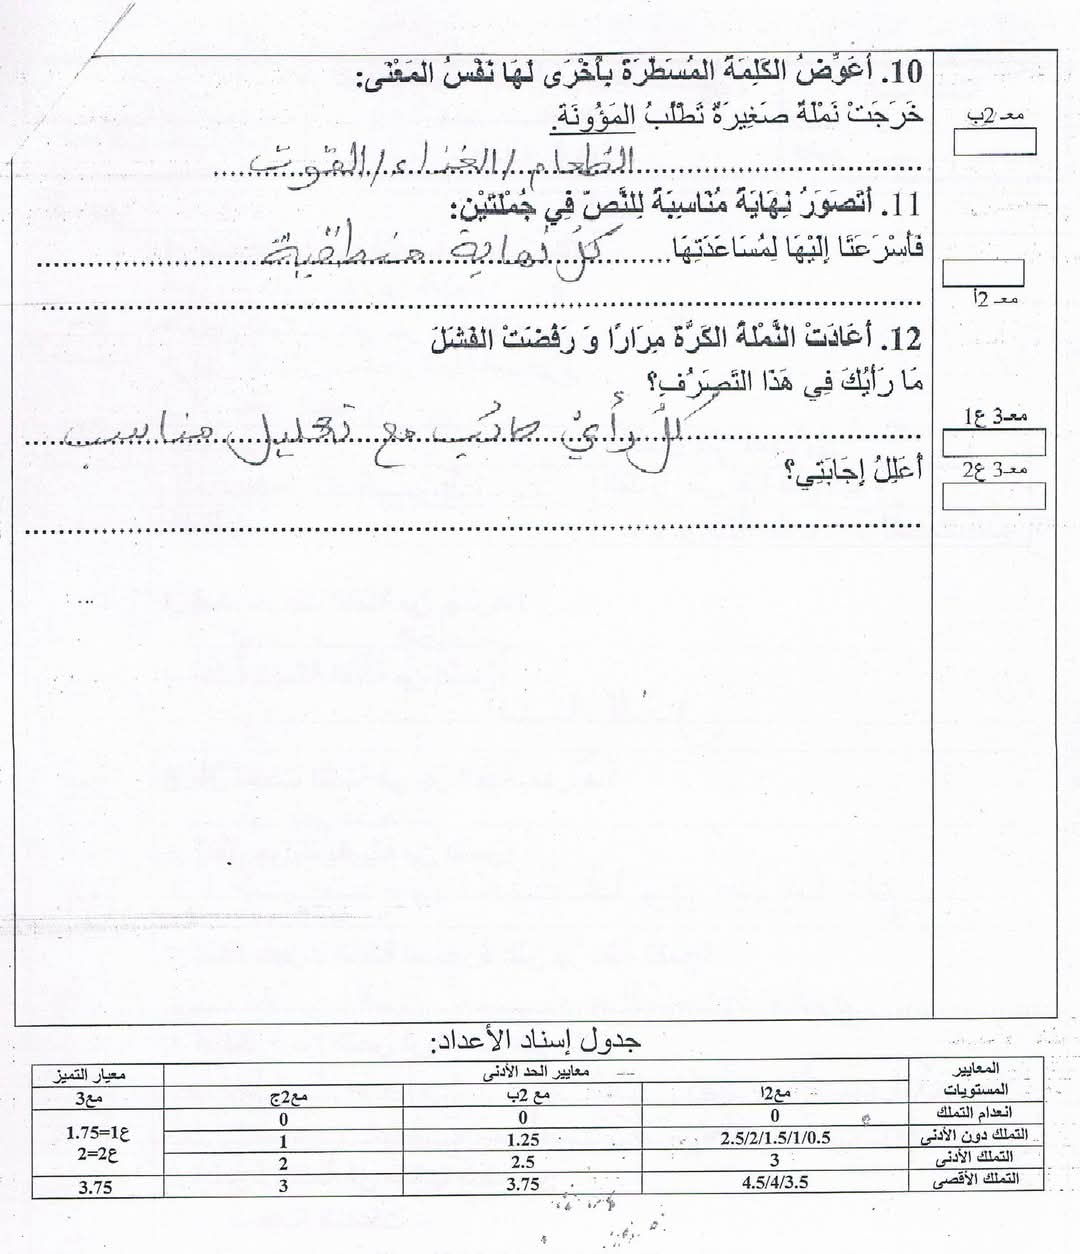 10. أعَوِّضُ الكَلِمَةَ المُسَطَّرَةَ بأخْرَى لَهَا نَفْسُ المَعْنَى:
خَرَجَتْ نَمْلَةٌ صَغِيرَةٌ تَطْلُبُ المَؤُونَةَ.
معـ2ب
الطعام/الغذاء/القوت
11. أتَصَوَّرُ نِهَايَةً مُنَاسِبَةً لِلنَّصِّ فِي جُمْلَتَيْنِ:
فَأسْرَعَتَا إلَيْهَا لِمُسَاعَدَتِهَا كلّ نهاية منطقية
معـ2أ
12. أعَادَتْ النَّمْلَةُ الكَرَّةَ مِرَارًا وَ رَفَضَتْ الفَشَلَ
مَا رَأيُكَ فِي هَذَا التَّصَرُّفِ؟
معـ3 ع1
كلُّ رأيٍ صائب مع تعليل مناسب
معـ3 ع2
أعَلِّلُ إجَابَتِي؟
جدول إسناد الأعداد:
المعايير معايير الحد الأدنى معيار التميز
المستويات مع2ا مع 2ب مع2ج مع3
انعدام التملك 0 0 0
التملك دون الأدنى 2.5/2/1.5/1/0.5 1.25 1 ع1=1.75
التملك الأدنى 3 2.5 2 ع2=2
التملك الأقصى 4.5/4/3.5 3.75 3 3.75